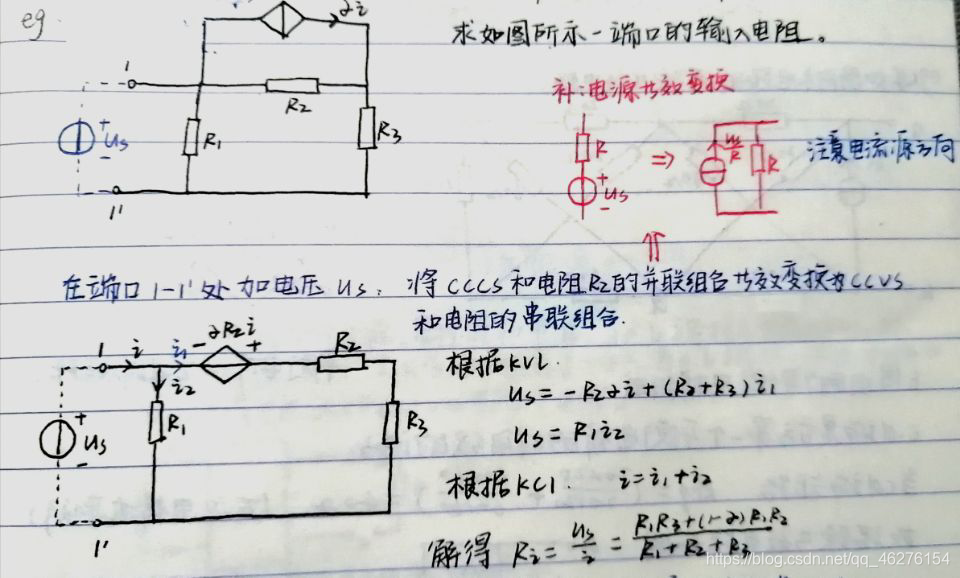 eg
αi
求如图所示一端口的输入电阻。
1
R2
R1
R3
+
us
-
1'
补:电源等效变换
R
+
us
-
⇒
us/R
R
注意电流源方向
⇑
在端口1-1'处加电压us,将CCCS和电阻R2的并联组合等效变换为CCVS
和电阻的串联组合.
1
i
i1
- αR2i +
R2
i2
R1
R3
+
us
-
1'
根据KVL.
us = -R2αi + (R2+R3)i1
us = R1i2
根据KCl. i = i1 + i2
解得 Ri = us/i = R1R3+(1-α)R1R2 / R1+R2+R3
https://blog.csdn.net/qq_46276154